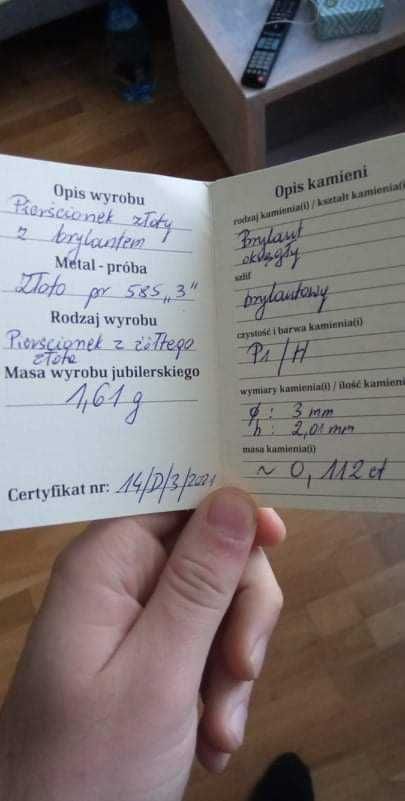 Opis wyrobu
Pierścionek złoty
z brylantem
Metal - próba
Złoto pr 585 „3"
Rodzaj wyrobu
Pierścionek z żółtego
złota
Masa wyrobu jubilerskiego
1,61 g
Certyfikat nr: 14/D/3/2021
Opis kamieni
rodzaj kamienia(i) / kształt kamienia(i
Brylant
okrągły
szlif
brylantowy
czystość i barwa kamienia(i)
P1/H
wymiary kamienia(i) / ilość kamieni
ϕ : 3 mm
h : 2,01 mm
masa kamienia(i)
~ 0,112 ct